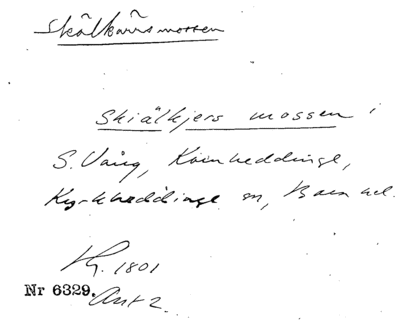 Skälkärrsmossen
Skiälkjers mossen i
S. Vång, Kornheddinge,
Kyrkheddinge sn, Bara hd.
1801
Nr 6329. Akt 2.